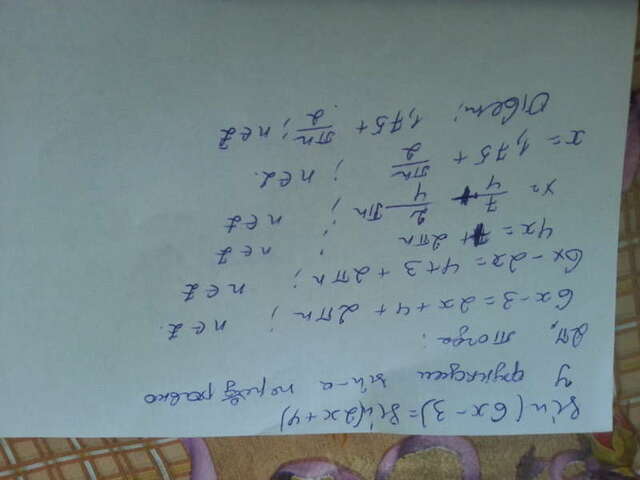 sin(6x-3)=sin(2x+4)
у функции sin-а период равно
2π, тогда:
6x-3=2x+4+2πn; n∈Z.
6x-2x=4+3+2πn; n∈Z
4x=7+2πn; n∈Z
x=7/4+2/4πn; n∈Z
x=1,75+πn/2; n∈Z.
Ответ: 1,75+πn/2; n∈Z